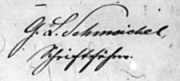 G. L. Schmeichel,
Schriftführer.